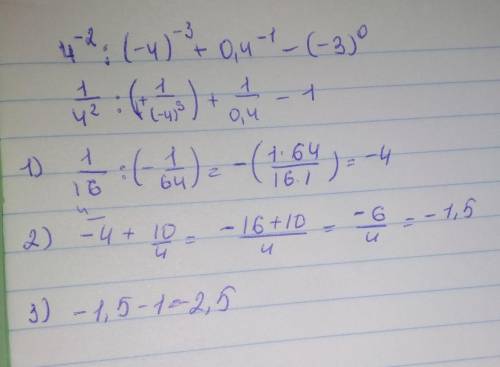 4⁻² : (-4)⁻³ + 0,4⁻¹ - (-3)⁰
1/4² : (+ 1/(-4)³) + 1/0,4 - 1
1) 1/16 : (- 1/64) = -(1·64/16·1) = -4
2) 4 -4 + 10/4 = -16+10/4 = -6/4 = -1,5
3) -1,5-1=-2,5